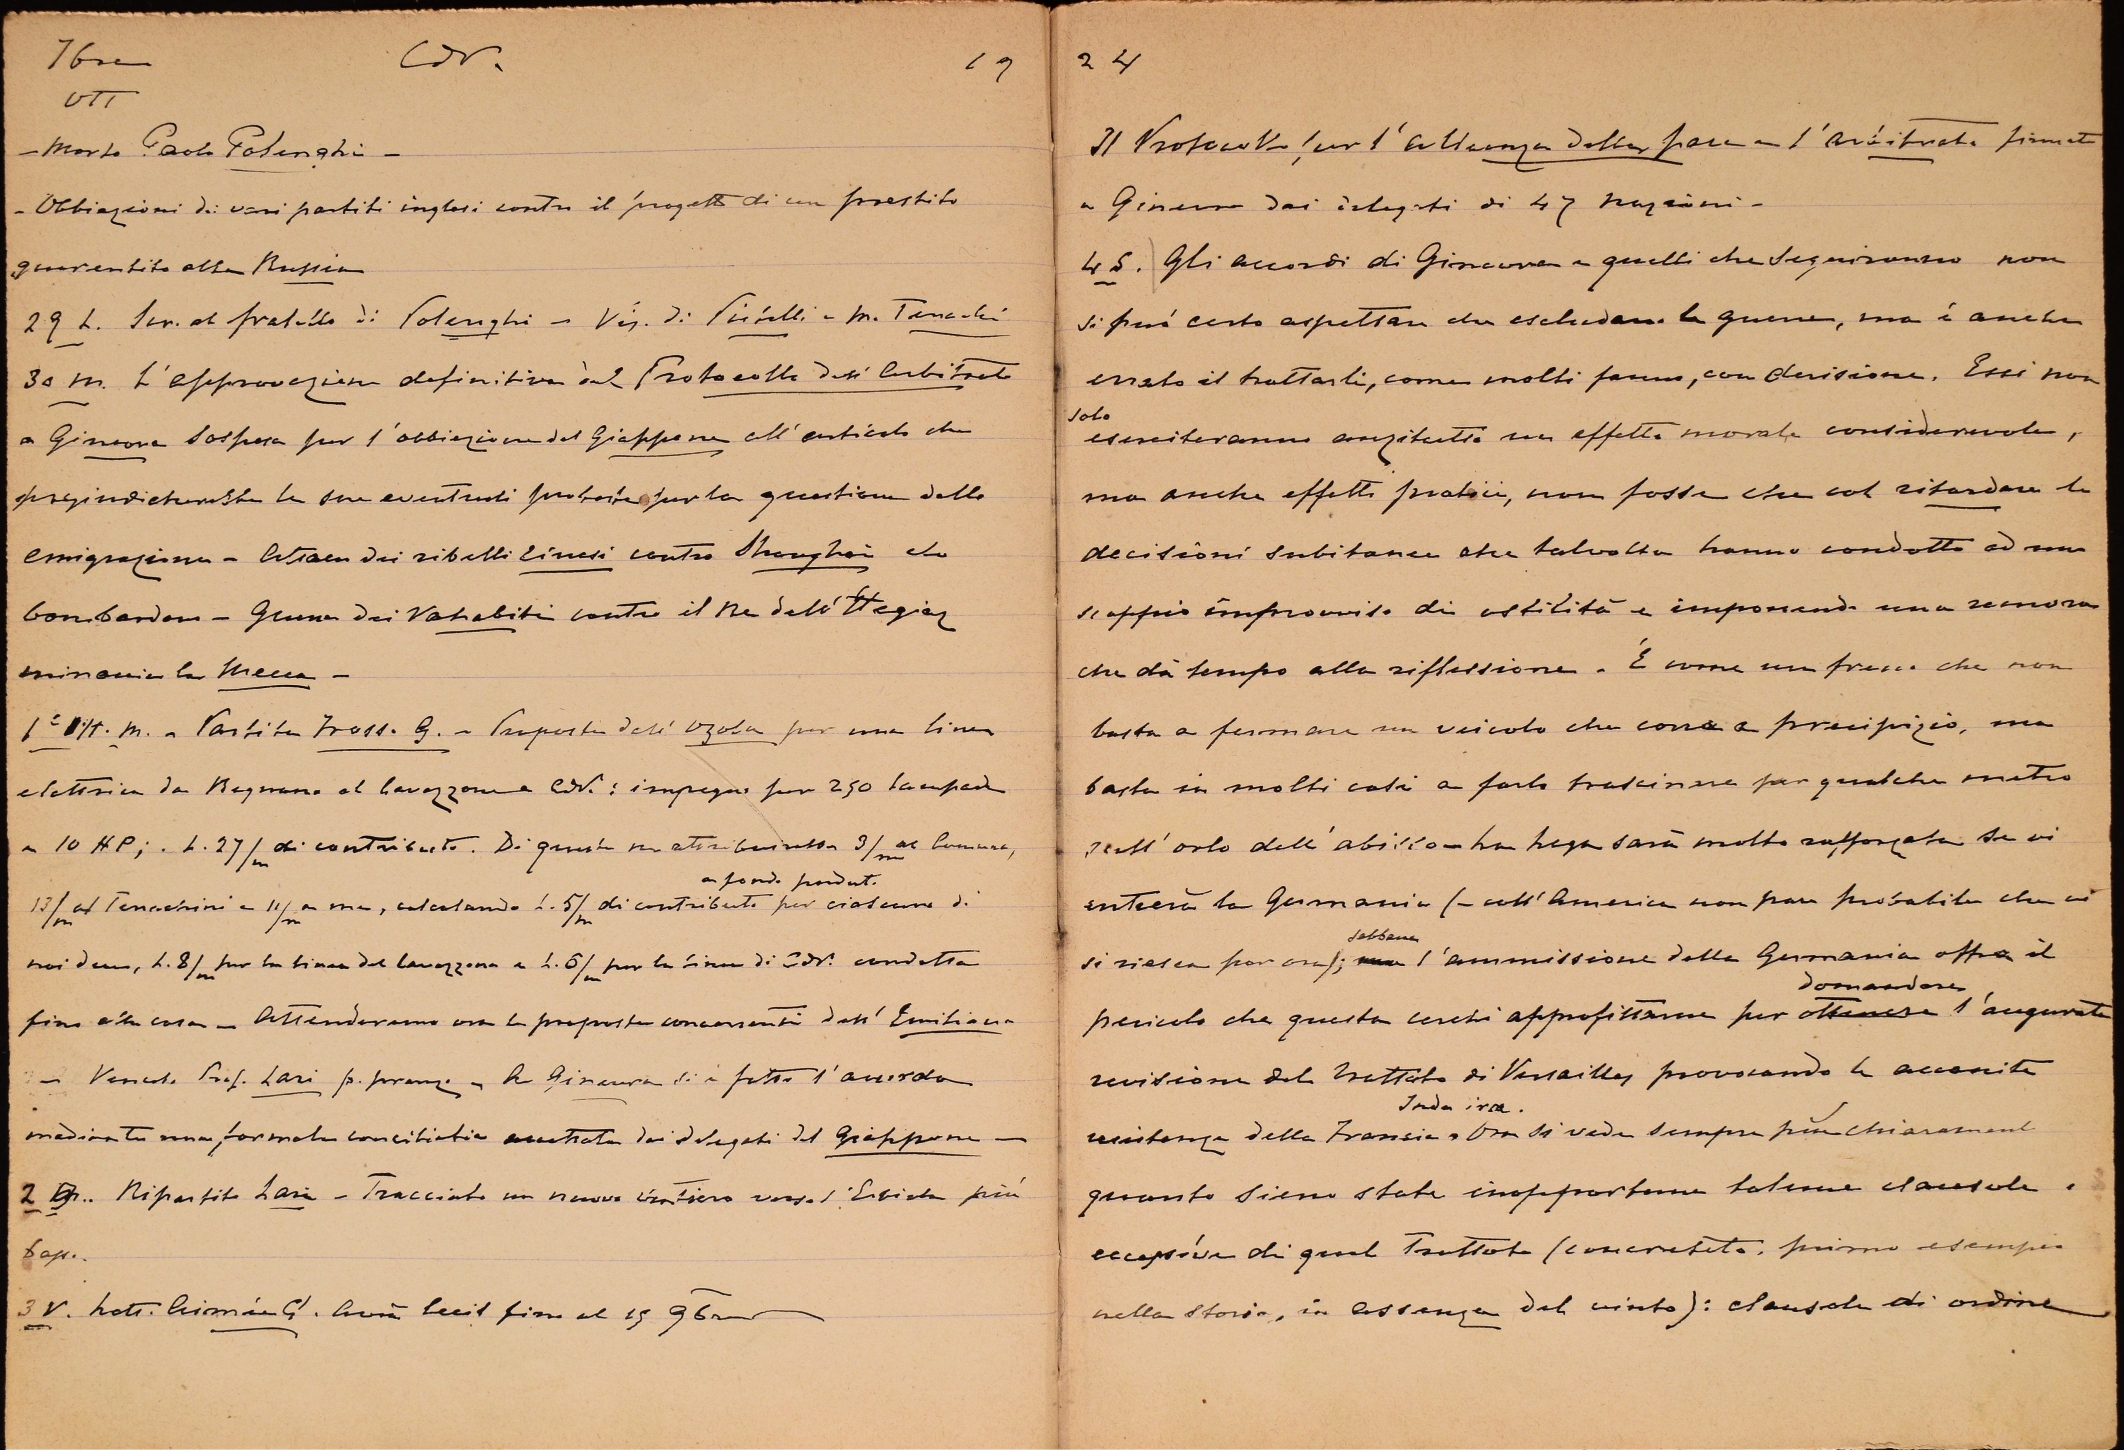 7bre CdV. 19
Ott
- Morto Paolo Polenghi -
- Obbiezioni di vari partiti inglesi contro il progetto di un prestito
guarentito alla Russia
29 L. Scr. al fratello di Polenghi - Vis. di Pirelli e M. Tenachi
30 M. L'approvazione definitiva del Protocollo dell'Arbitrato
a Ginevra sospesa per l'obbiezione del Giappone all'articolo che
pregiudicherebbe le sue eventuali proteste per la questione della
emigrazione - Attacco dei ribelli Cinesi contro Shanghai che
bombardano - Guerra dei Vahabiti contro il Re dell'Hegiaz
minaccia la Mecca -
1° Ott. M. - Partita Fross. G. - Proposta dell' Ozola per una linea
elettrica da Regnano al Cavazzone e CdV. : impegno per 250 lampade
e 10 HP; . L. 27/m di contributo. Di queste ne attribuirebbe 3/m al Comune,
a fondo perduto
13/m al Tenachini e 11/m a me, calcolando L. 5/m di contributo per ciascuno di
noi due, L. 8/m per la linea del Cavazzone e L. 6/m per la linea di CdV. condotta
fino alla casa - Attenderemo ora le proposte concorrenti dell' Emiliana
- Venuto Prof. Lari p. pranzo - A Ginevra si è fatto l'accordo
mediante una formula conciliativa accettata dai delegati del Giappone -
2 G. Ripartito Lari - Tracciato un nuovo sentiero verso l' più
basso.
3 V. Lett. G. Avrà fino al 15 9bre
24
Il Protocollo per l'alleanza della pace e l'arbitrato firmato
a Ginevra dai delegati di 47 nazioni -
4 S. Gli accordi di Ginevra e quelli che seguiranno non
si può certo aspettare che escludano le guerre, ma è anche
errato il trattarli, come molti fanno, con derisione. Essi non
solo
eserciteranno anzitutto un effetto morale considerevole,
ma anche effetti pratici, non fosse che col ritardare le
decisioni subitanee che talvolta hanno condotto ad uno
scoppio improvviso di ostilità e imponendo una remora
che dà tempo alla riflessione. È come un freno che non
basta a fermare un veicolo che corre a precipizio, ma
basta in molti casi a farlo trascinare per qualche metro
sull'orlo dell'abisso - La Lega sarà molto rafforzata se vi
entrerà la Germania (- coll'America non pare probabile che ci
sebbene
si riesca per ora); ma l'ammissione della Germania offra il
domandare
pericolo che questa cerchi approfittarne per ottenere l'augurata
revisione del Trattato di Versailles provocando le accanite
Inde irae.
resistenze della Francia. Ora si vede sempre più chiaramente
quanto sieno state inopportune talune clausole
eccessive di quel Trattato (concretato, primo esempio
nella storia, in assenza del vinto): clausole di ordine